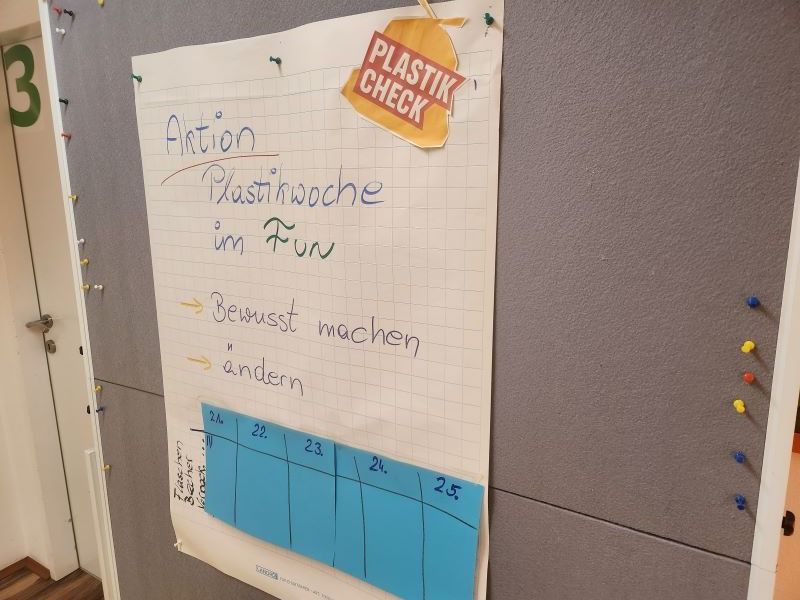 3
PLASTIK
CHECK
Aktion
Plastikwoche
im Fun
→ Bewusst machen
→ ändern
21. 22. 23. 24. 25.
Flaschen
Becher
LANDRÉ